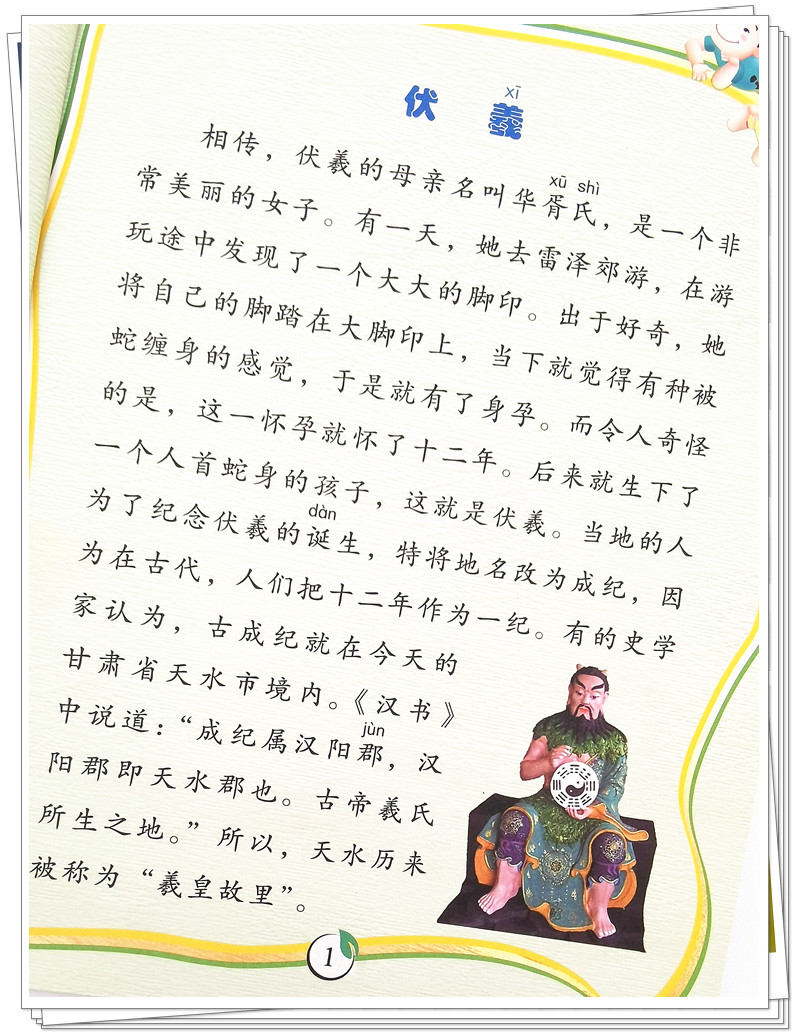 xī
伏羲
xū shì
相传，伏羲的母亲名叫华胥氏，是一个非
常美丽的女子。有一天，她去雷泽郊游，在游
玩途中发现了一个大大的脚印。出于好奇，她
将自己的脚踏在大脚印上，当下就觉得有种被
蛇缠身的感觉，于是就有了身孕。而令人奇怪
的是，这一怀孕就怀了十二年。后来就生下了
一个人首蛇身的孩子，这就是伏羲。当地的人
dàn
为了纪念伏羲的诞生，特将地名改为成纪，因
为在古代，人们把十二年作为一纪。有的史学
家认为，古成纪就在今天的
甘肃省天水市境内。《汉书》
jùn
中说道：“成纪属汉阳郡，汉
阳郡即天水郡也。古帝羲氏
所生之地。”所以，天水历来
被称为“羲皇故里”。
1